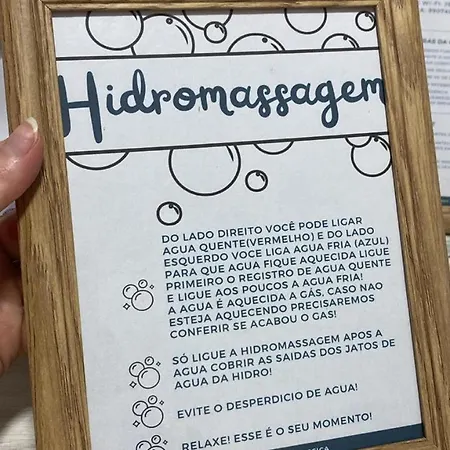 Hidromassagem
DO LADO DIREITO VOCÊ PODE LIGAR
AGUA QUENTE(VERMELHO) E DO LADO
ESQUERDO VOCE LIGA AGUA FRIA (AZUL)
PARA QUE AGUA FIQUE AQUECIDA LIGUE
PRIMEIRO O REGISTRO DE AGUA QUENTE
E LIGUE AOS POUCOS A AGUA FRIA!
A AGUA É AQUECIDA A GÁS, CASO NAO
ESTEJA AQUECENDO PRECISAREMOS
CONFERIR SE ACABOU O GAS!
SÓ LIGUE A HIDROMASSAGEM APOS A
AGUA COBRIR AS SAIDAS DOS JATOS DE
AGUA DA HIDRO!
EVITE O DESPERDICIO DE AGUA!
RELAXE! ESSE É O SEU MOMENTO!